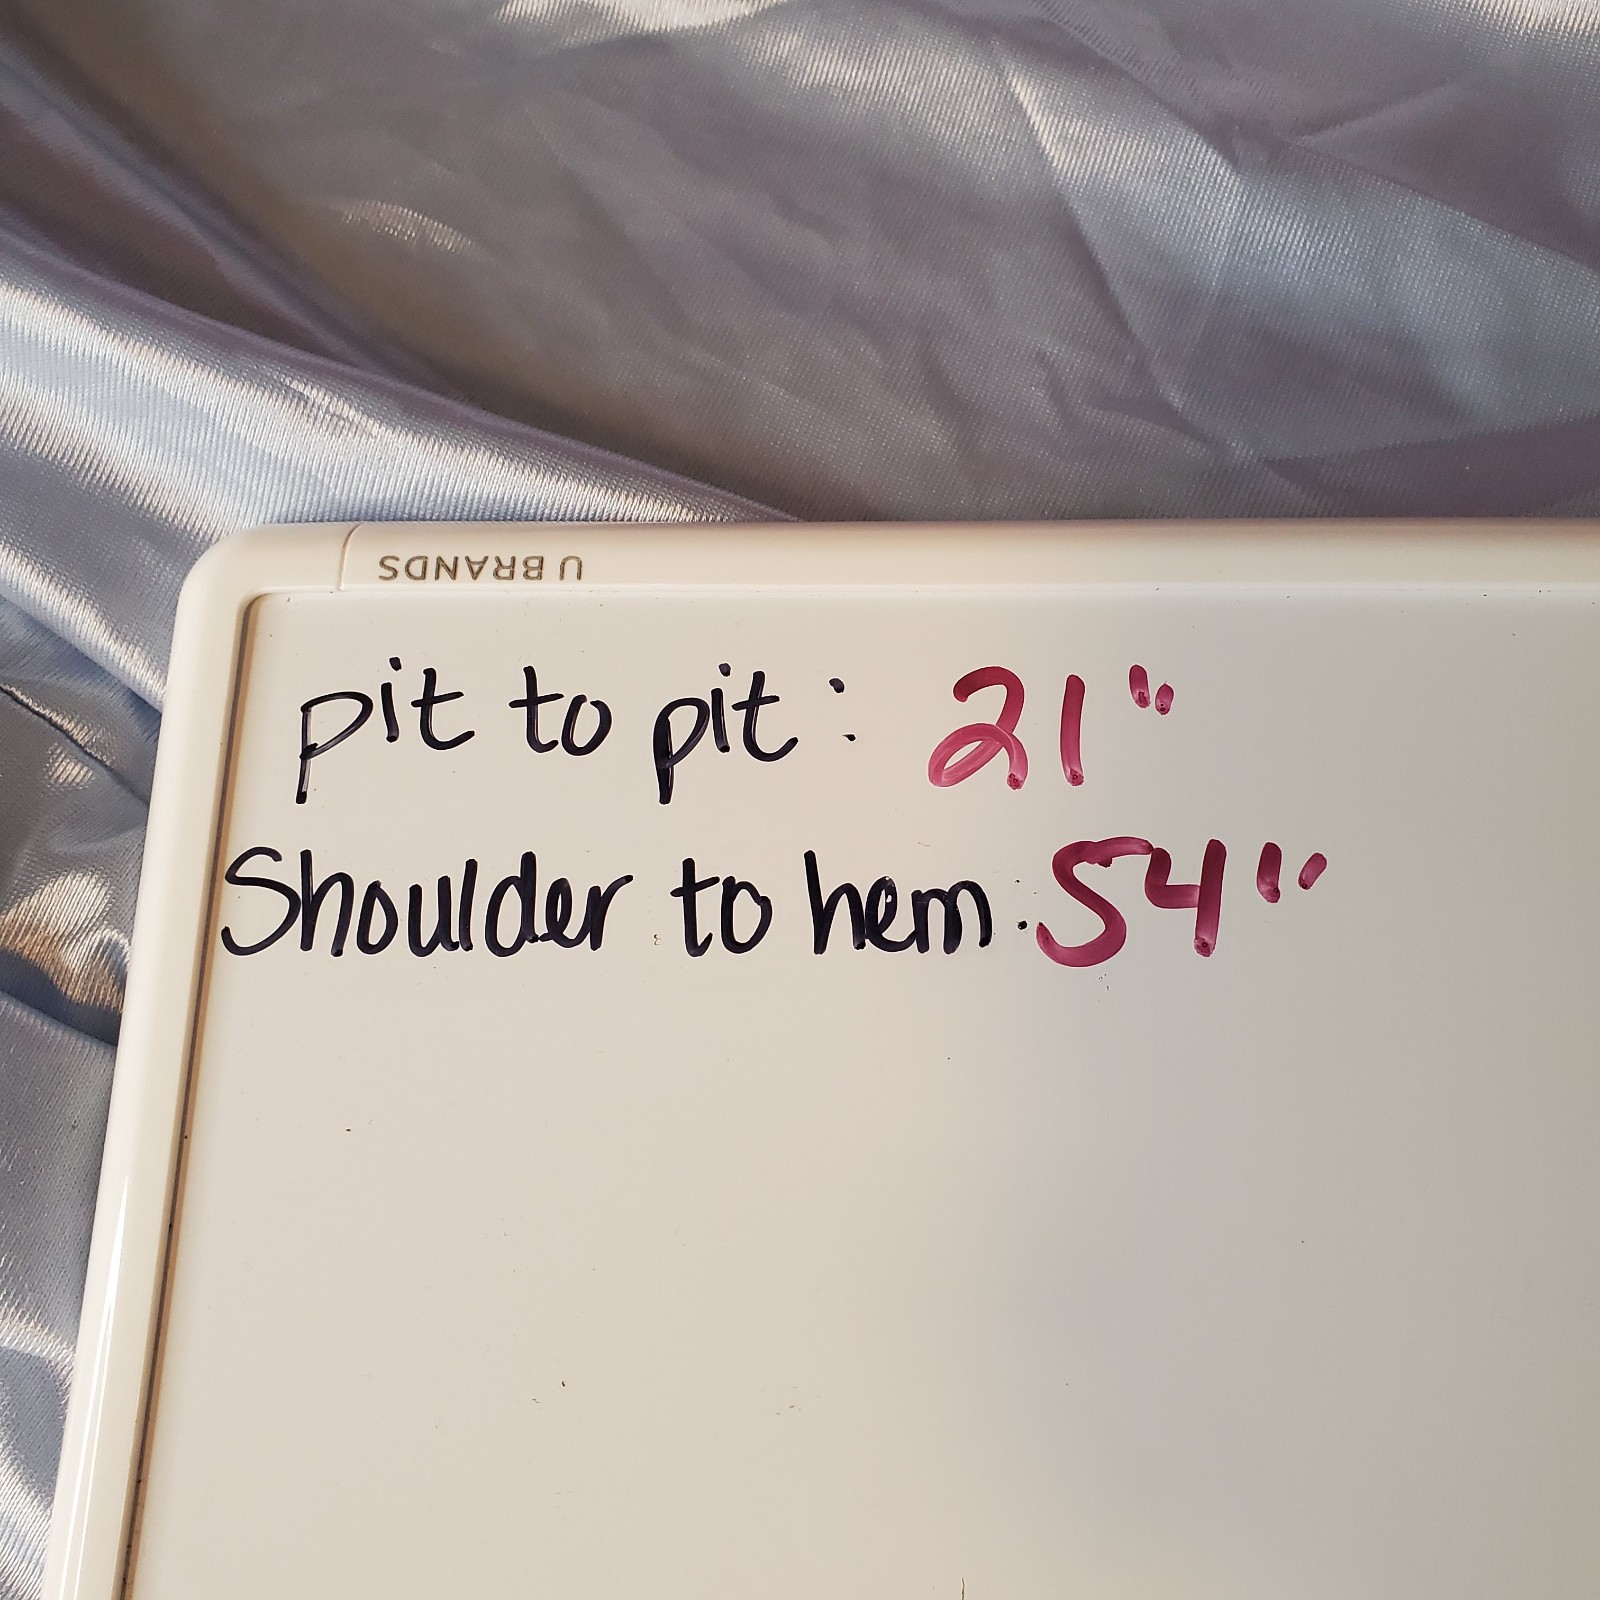 U BRANDS
pit to pit: 21"
Shoulder to hem: 54"